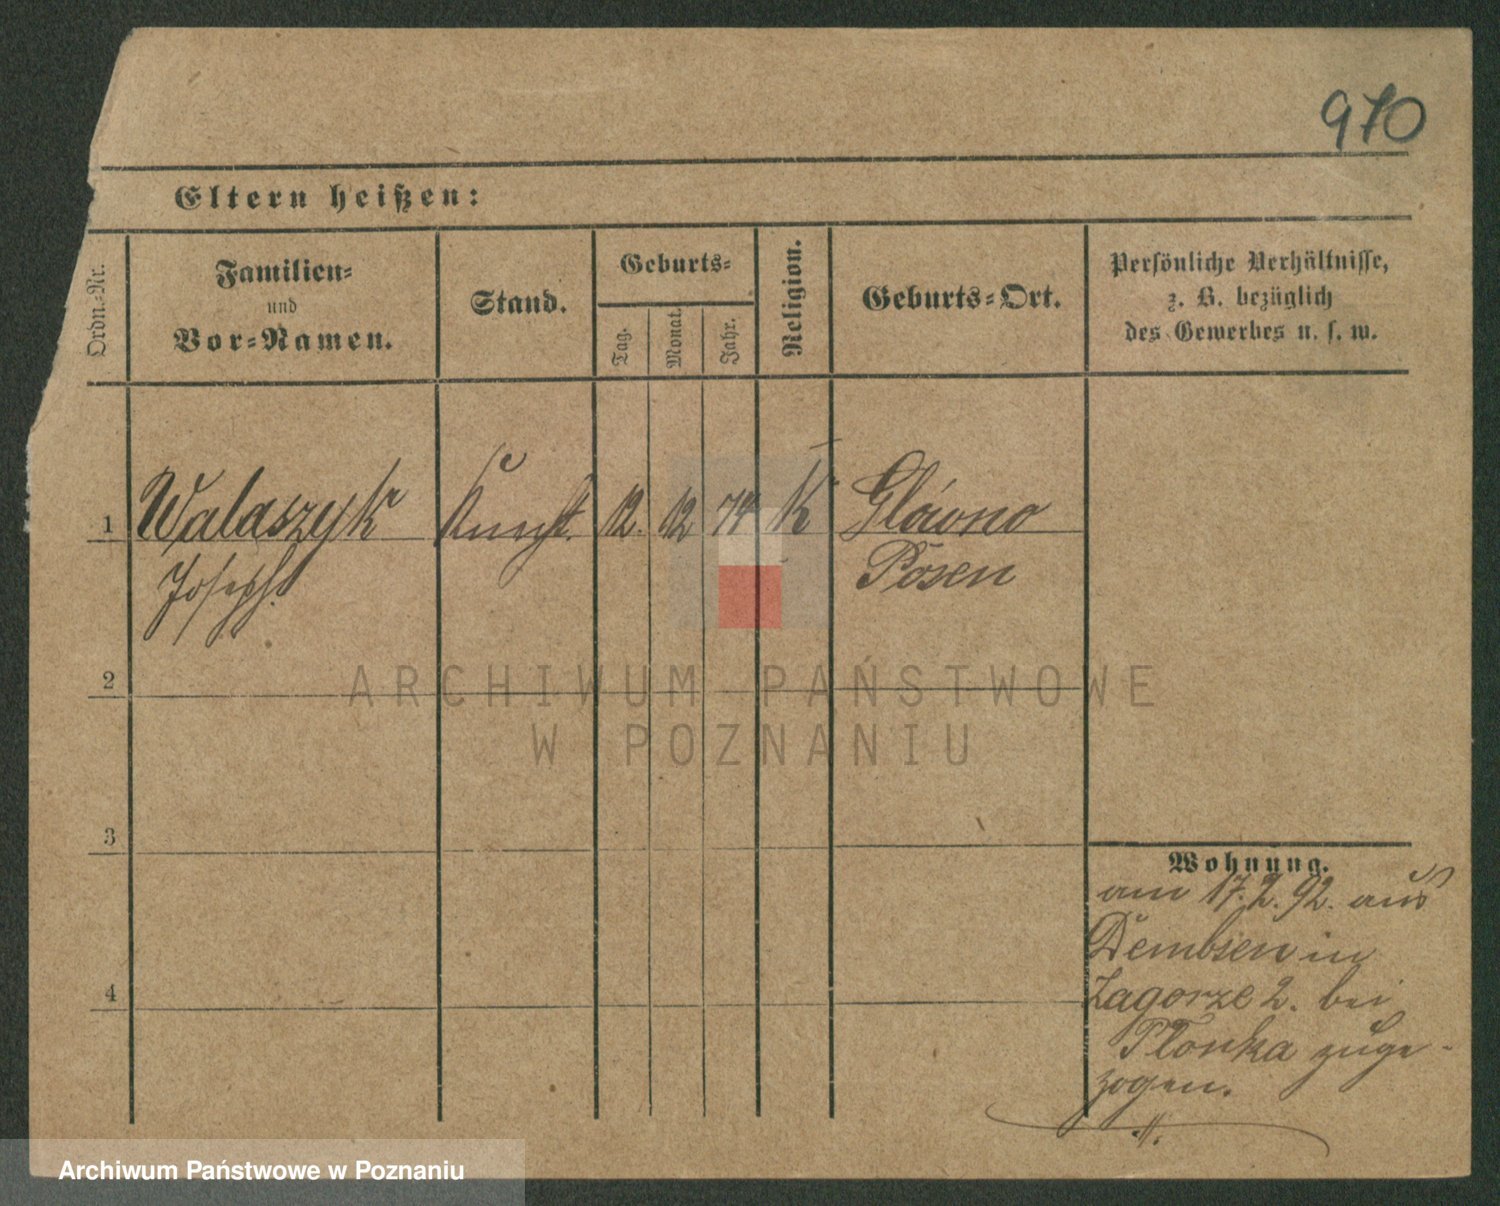 970
Eltern heißen:
Ordn.-Nr.
Familien-
und
Vor-Namen.
Stand.
Geburts-
Tag.
Monat.
Jahr.
Religion.
Geburts-Ort.
Persönliche Verhältnisse,
z. B. bezüglich
des Gewerbes u. s. w.
1 Walaszyk Knecht. 12. 12 74. K Glówno
Joseph. Posen
2
3
4
Wohnung.
am 17.2.92. aus
Dembsen in
Zagorze 2. bei
Plonka zuge-
zogen.
ARCHIWUM PAŃSTWOWE
W POZNANIU
Archiwum Państwowe w Poznaniu